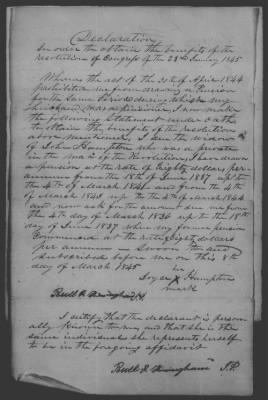 Declaration
In order to obtain the benefits of the
resolution of Congress of the 23d January 1845
Whereas the act of the 30th of April 1844
prohibited me from drawing a Pension
for the same period during which my
husband I now make
the following Statement under oath
to obtain the benefits of the resolution
above mentioned, I am the widow
of John Hampton who was a private
in the war of the Revolution, I have drawn
a pension at the rate of Eighty dollars per
annum from the 18th of June 1837 up to
the 4th of March 1841 and from the 4th
of March 1843 up to the 4th of March 1844
and now ask for the amount due me from
the 4th day of March 1836 up to the 18th
day of June 1837 when my former pension
Commenced at the rate Eighty dollars
per annum Sworn to and
subscribed before me on this 8th
day of March 1845
her
X Hampton
mark
I certify that the declarant is person
ally known to me and that she is the
same individual she represents herself
to be in the foregoing affidavit
J.P.